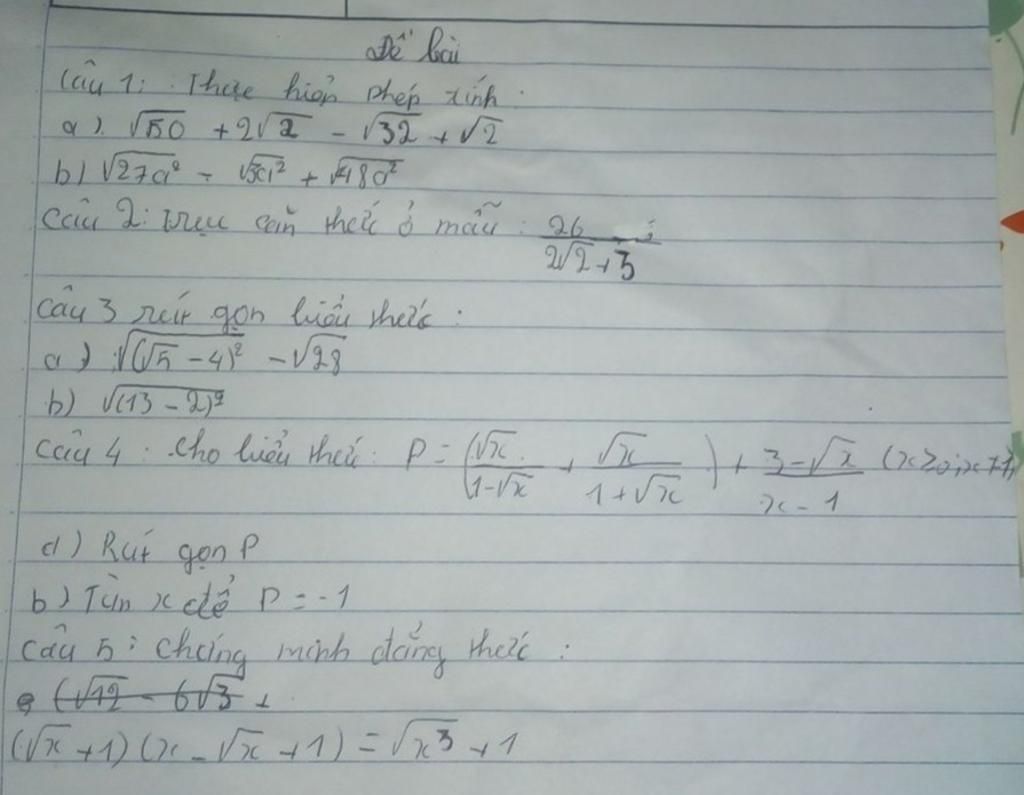 Đề bài
Câu 1: Thực hiện phép tính:
a) √50 + 2√2 - √32 + √2
b) √27a² - √3a² + √48a²
Câu 2: Trục căn thức ở mẫu: 26/(2√2 + 3)
Câu 3 rút gọn biểu thức:
a) √((√5 - 4)²) - √28
b) √((13 - 2)²)
Câu 4: Cho biểu thức: P = (√x/(1-√x) + √x/(1+√x)) + (3-√x)/(x-1) (x≥0; x≠1)
a) Rút gọn P
b) Tìm x để P = -1
Câu 5: Chứng minh đẳng thức:
(√12 - 6√3 +
(√x + 1)(x - √x + 1) = √x³ + 1